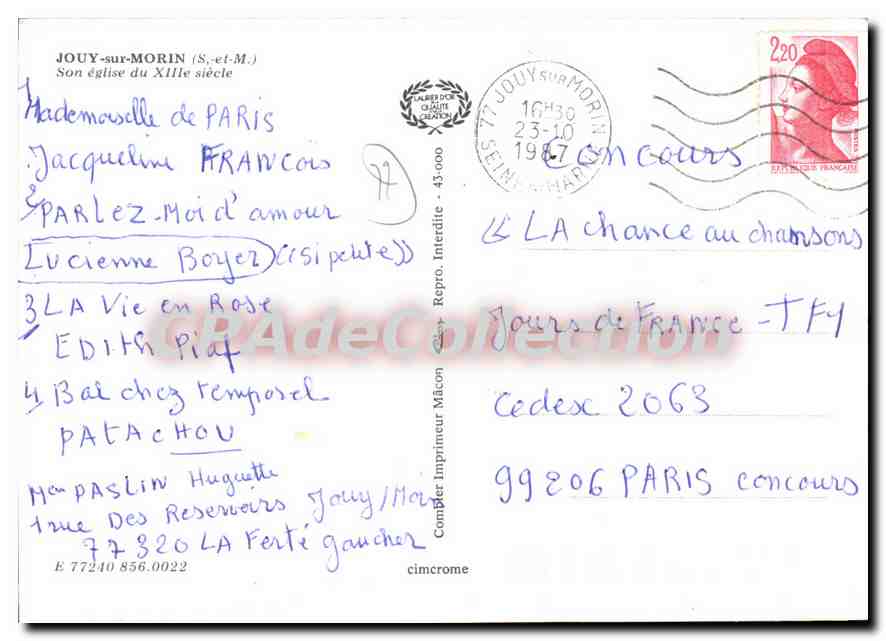 JOUY-sur-MORIN (S.-et-M.)
Son église du XIIIe siècle
1 Mademoiselle de PARIS
Jacqueline FRANCOIS
2 PARLEZ-Moi d'amour
Lucienne Boyer ((si petite))
3 LA Vie en Rose
EDITH Piaf
4 Bal chez temporel
PATACHOU
PASLIN Huguette
1 rue Des Reservoirs Jouy/Morin
77320 LA Ferté gaucher
E 77240 856.0022
77
LAURIER D'OR
DE LA
QUALITÉ
CRÉATION
Combier Imprimeur Mâcon Repro. Interdite - 43-000
cimcrome
77 JOUY SUR MORIN
16H30
23-10
1987
SEINE-MARNE
2,20
REPUBLIQUE FRANÇAISE
Concours
« LA chance au chansons
Jours de FRANCE - TF1
Cedex 2063
99206 PARIS concours
CPAdeCollection